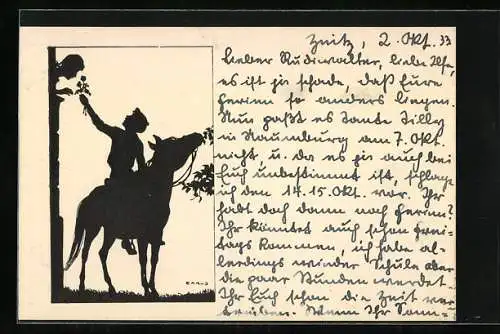 Zeitz, 2. Okt. 33
Lieber Rudiwalter, liebe Ilse,
es ist zu schade, daß Eure
Ferien so anders liegen.
Nun paßt es Tante Tilly
in Naumburg am 7. Okt.
nicht, u. da es ja auch bei
Euch unbestimmt ist, schlage
ich den 14. 15. Okt. vor. Ihr
habt doch dann noch Ferien?
Ihr könntet auch schon frei-
tags kommen, ich habe al-
lerdings wieder Schule aber
die paar Stunden werdet
Ihr Euch schon die Zeit ver-
treiben. Wenn Ihr Sonn-